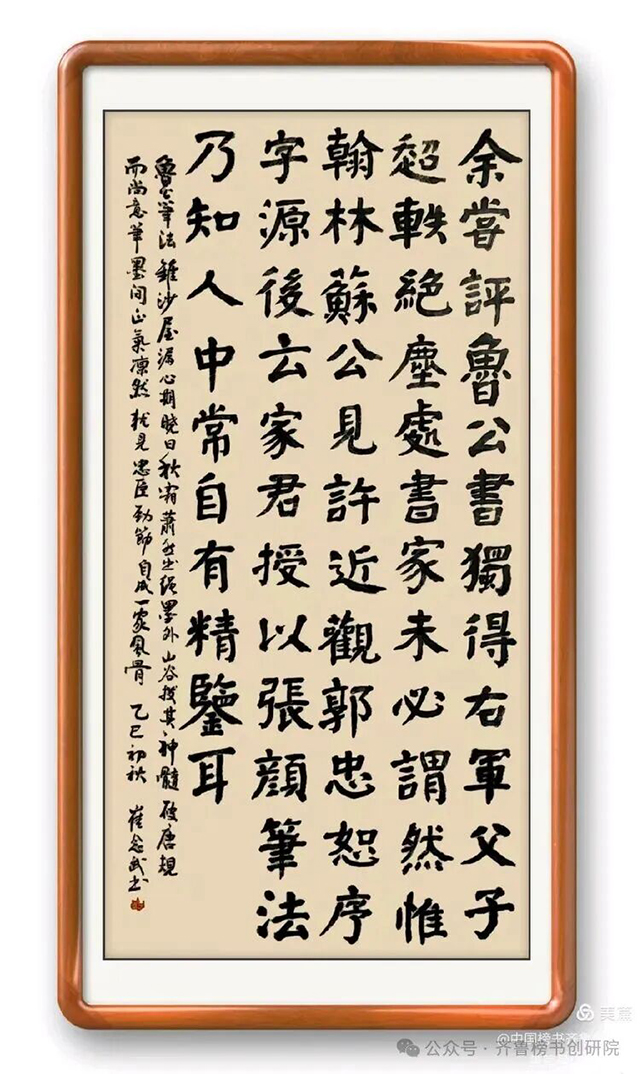 余嘗評魯公書獨得右軍父子
超軼絕塵處書家未必謂然惟
翰林蘇公見許近觀郭忠恕序
字源後云家君授以張顏筆法
乃知人中常自有精鑒耳
魯公筆法錐沙屋漏心期曉日秋霜蕭然出繩墨外山谷其神髓破唐規
而尚意筆墨间正氣凛然見忠臣勁節自成一家風骨 乙巳初秋 崔念武书
美篇
@中国榜书齐
公众号·齐鲁榜书创研院